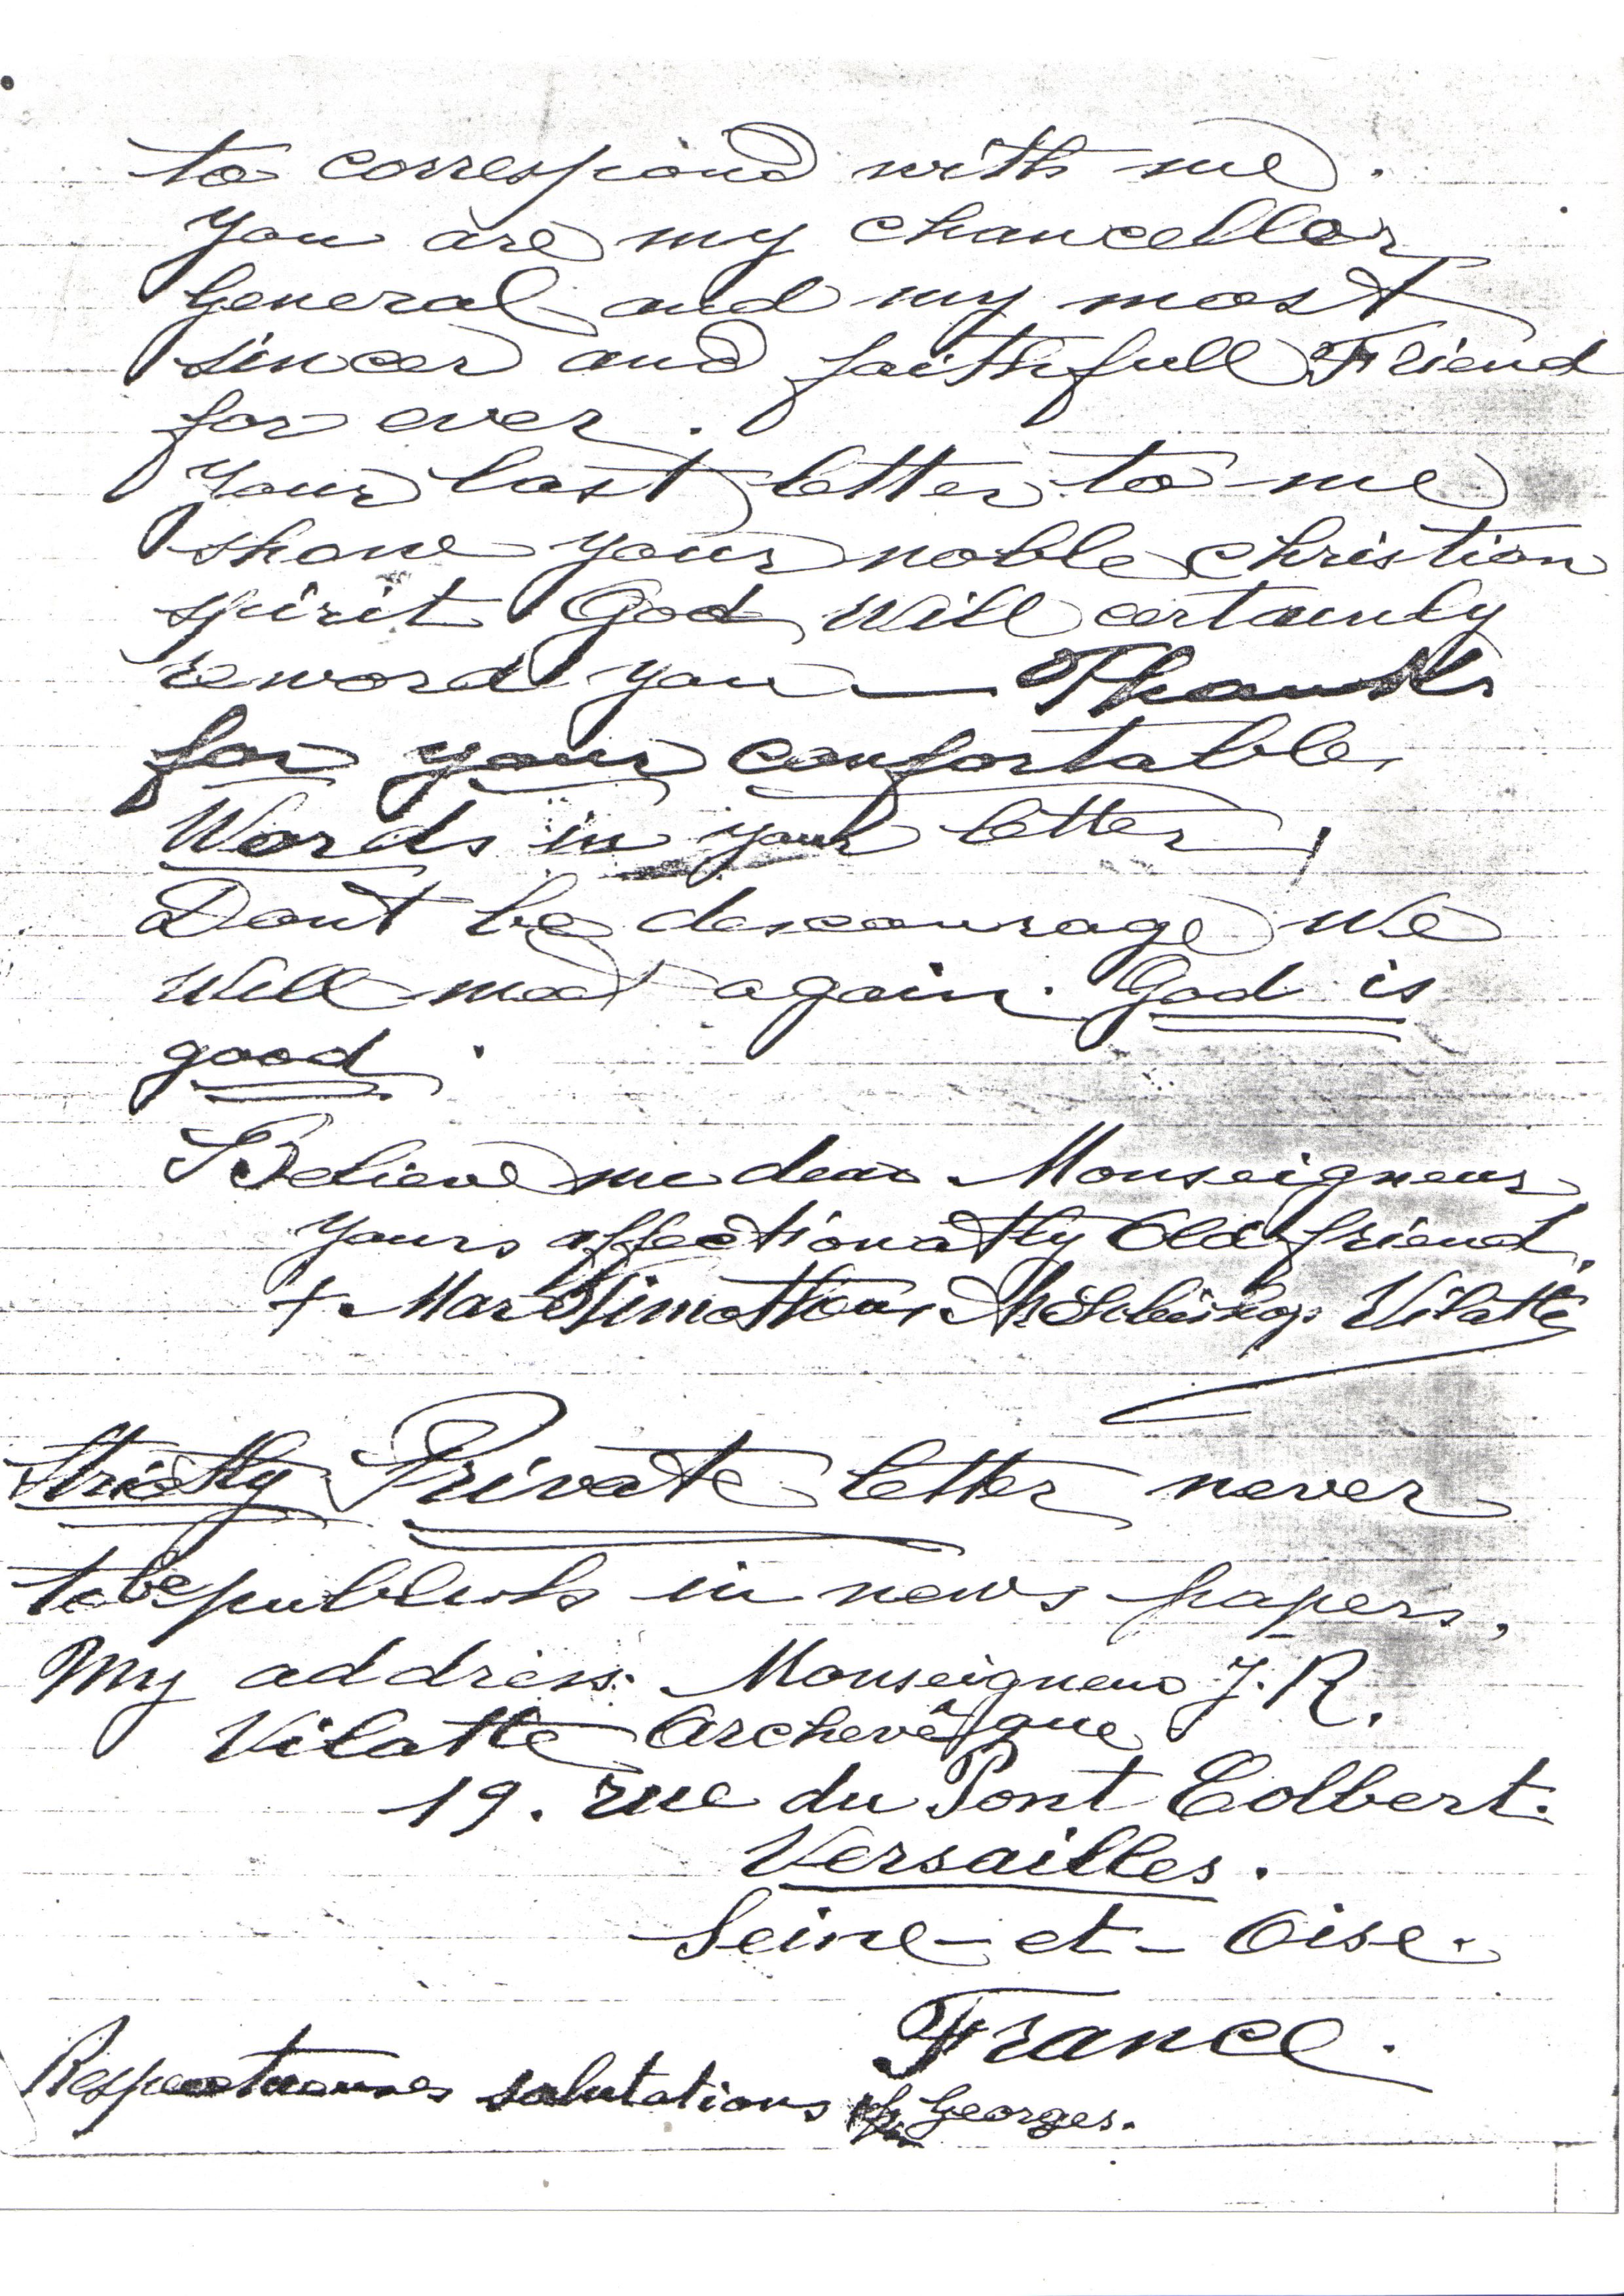 to correspond with me.
you are my chancellor
General and my most
sincer and faithfull Friend
for ever.
Your last letter to me
show your noble christian
spirit God Will certainly
reword you — Thanks
for your confortable
Words in your letter,
Dont be descourage we
Will meet again. God is
good.
Believe me dear Monseigneur
yours affectionatly Old friend.
+ Mar Timotheus, Archbishop Vilatte
Strictly Private letter never
to be publish in news papers,
My address: Monseigneur J. R.
Vilatte Archevêque
19. rue du Pont Colbert.
Versailles.
Seine-et-Oise.
France.
Respectueuses salutations Georges.